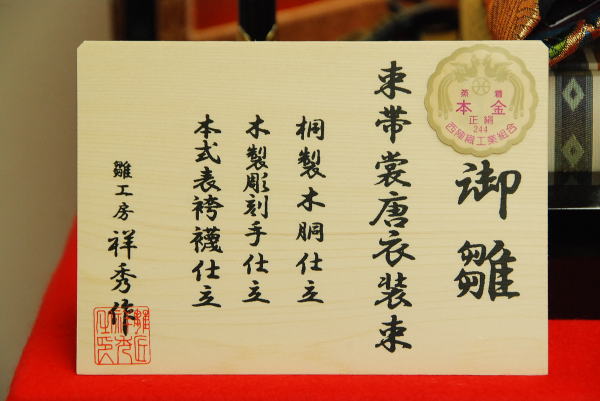 御雛
束帯裳唐衣装束
桐製木胴仕立
木製彫刻手仕立
本式表袴襪仕立
雛工房 祥秀作
蒸着
本金
正絹
244
西陣織工業組合